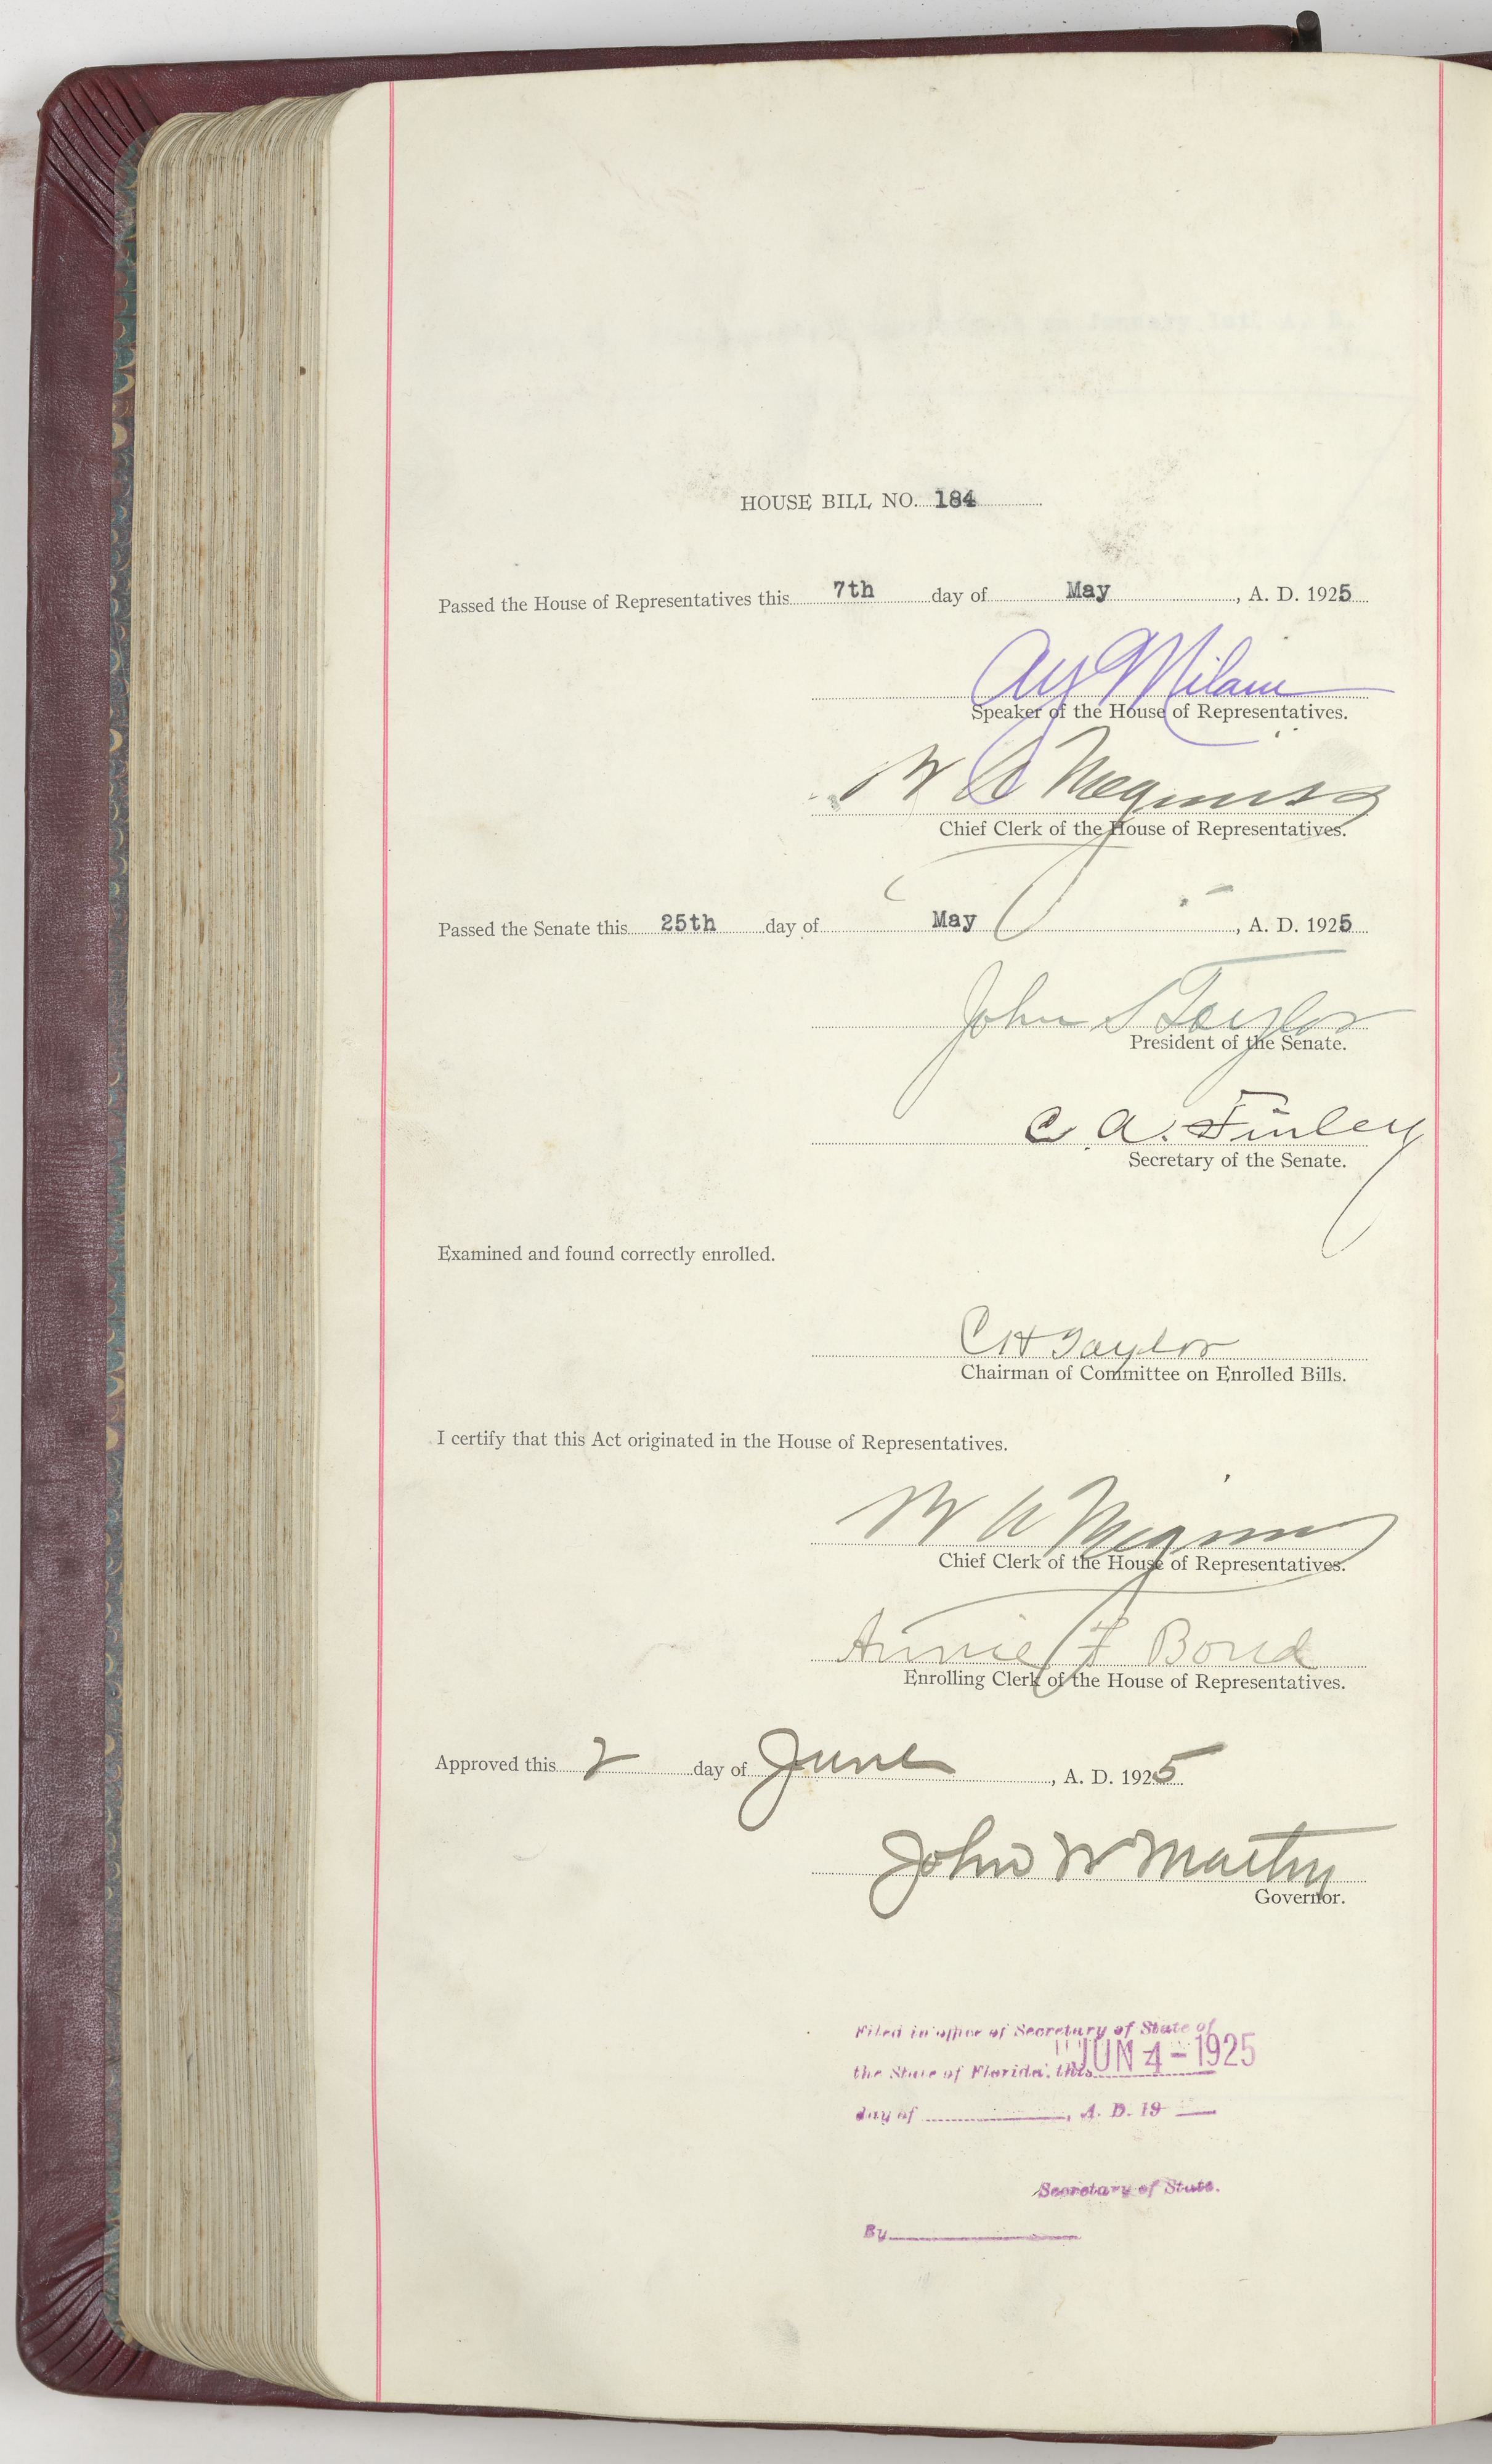 HOUSE BILL NO. 184
Passed the House of Representatives this 7th day of May, A. D. 1925
A Y Milam
Speaker of the House of Representatives.
Chief Clerk of the House of Representatives.
Passed the Senate this 25th day of May, A. D. 1925
John S Taylor
President of the Senate.
C A. Finley
Secretary of the Senate.
Examined and found correctly enrolled.
C H Taylor
Chairman of Committee on Enrolled Bills.
I certify that this Act originated in the House of Representatives.
Chief Clerk of the House of Representatives.
Annie F Bond
Enrolling Clerk of the House of Representatives.
Approved this 2 day of June, A. D. 1925
John W Martin
Governor.
Filed in office of Secretary of State of
the State of Florida, this JUN 4 - 1925
day of , A. D. 19
Secretary of State.
By